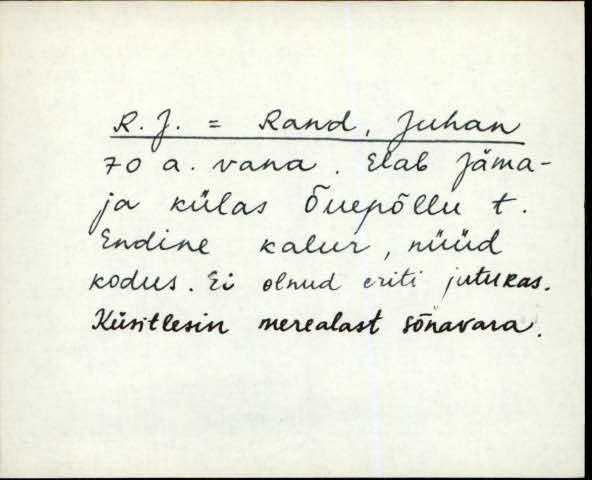 R. J. = Rand, Juhan
70 a. vana. Elab Jäma-
ja külas Õuepõllu t.
Endine kalur, nüüd
kodus. Ei olnud eriti jutukas.
Küsitlesin merealast sõnavara.